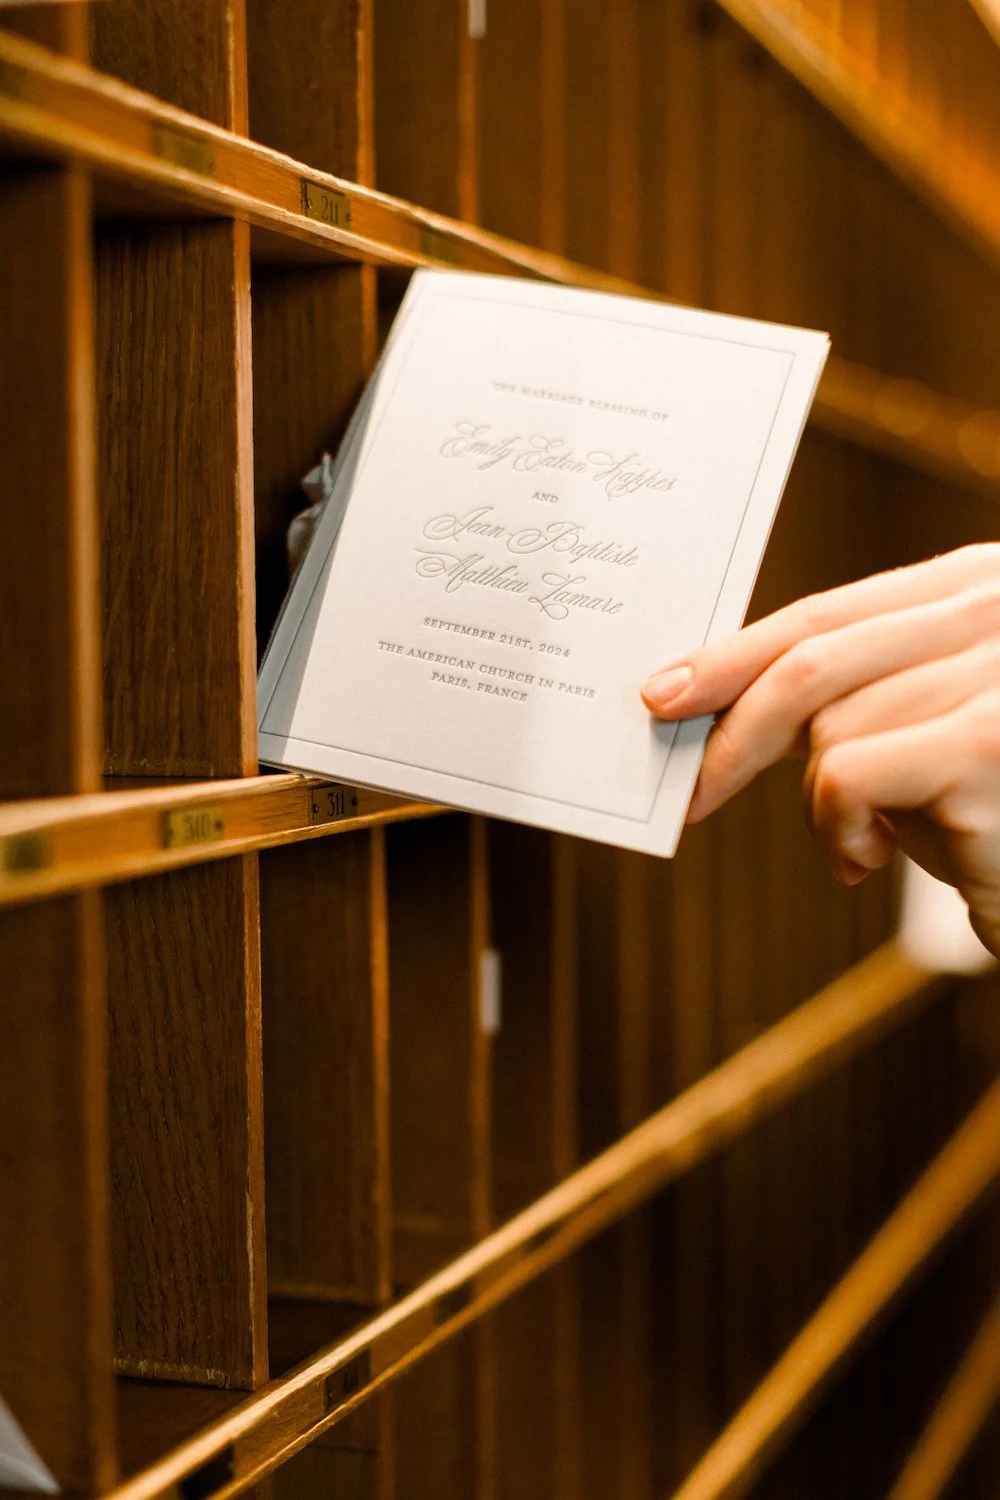 211
THE MARRIAGE BLESSING OF
Emily Eaton Kappes
AND
Jean-Baptiste
Matthieu Lamare
SEPTEMBER 21ST, 2024
THE AMERICAN CHURCH IN PARIS
PARIS, FRANCE
310
311